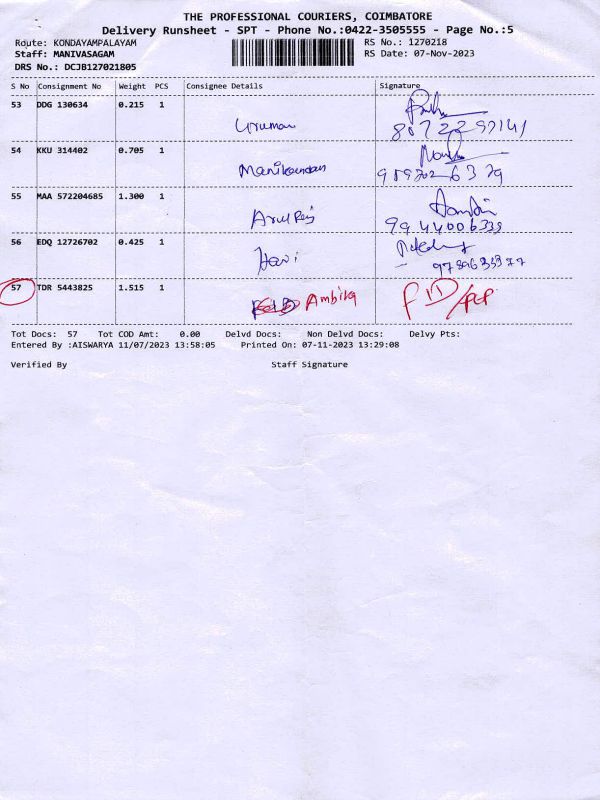 THE PROFESSIONAL COURIERS, COIMBATORE
Delivery Runsheet - SPT - Phone No.:0422-3505555 - Page No.:5
Route: KONDAYAMPALAYAM RS No.: 1270218
Staff: MANIVASAGAM RS Date: 07-Nov-2023
DRS No.: DCJB127021805
S No Consignment No Weight PCS Consignee Details Signature
53 DDG 130634 0.215 1
54 KKU 314402 0.705 1
Manikandan
55 MAA 572204685 1.300 1
Arul Raj
9944006339
56 EDQ 12726702 0.425 1
Hari
57 TDR 5443825 1.515 1 Ambika
Tot Docs: 57 Tot COD Amt: 0.00 Delvd Docs: Non Delvd Docs: Delvy Pts:
Entered By :AISWARYA 11/07/2023 13:58:05 Printed On: 07-11-2023 13:29:08
Verified By Staff Signature